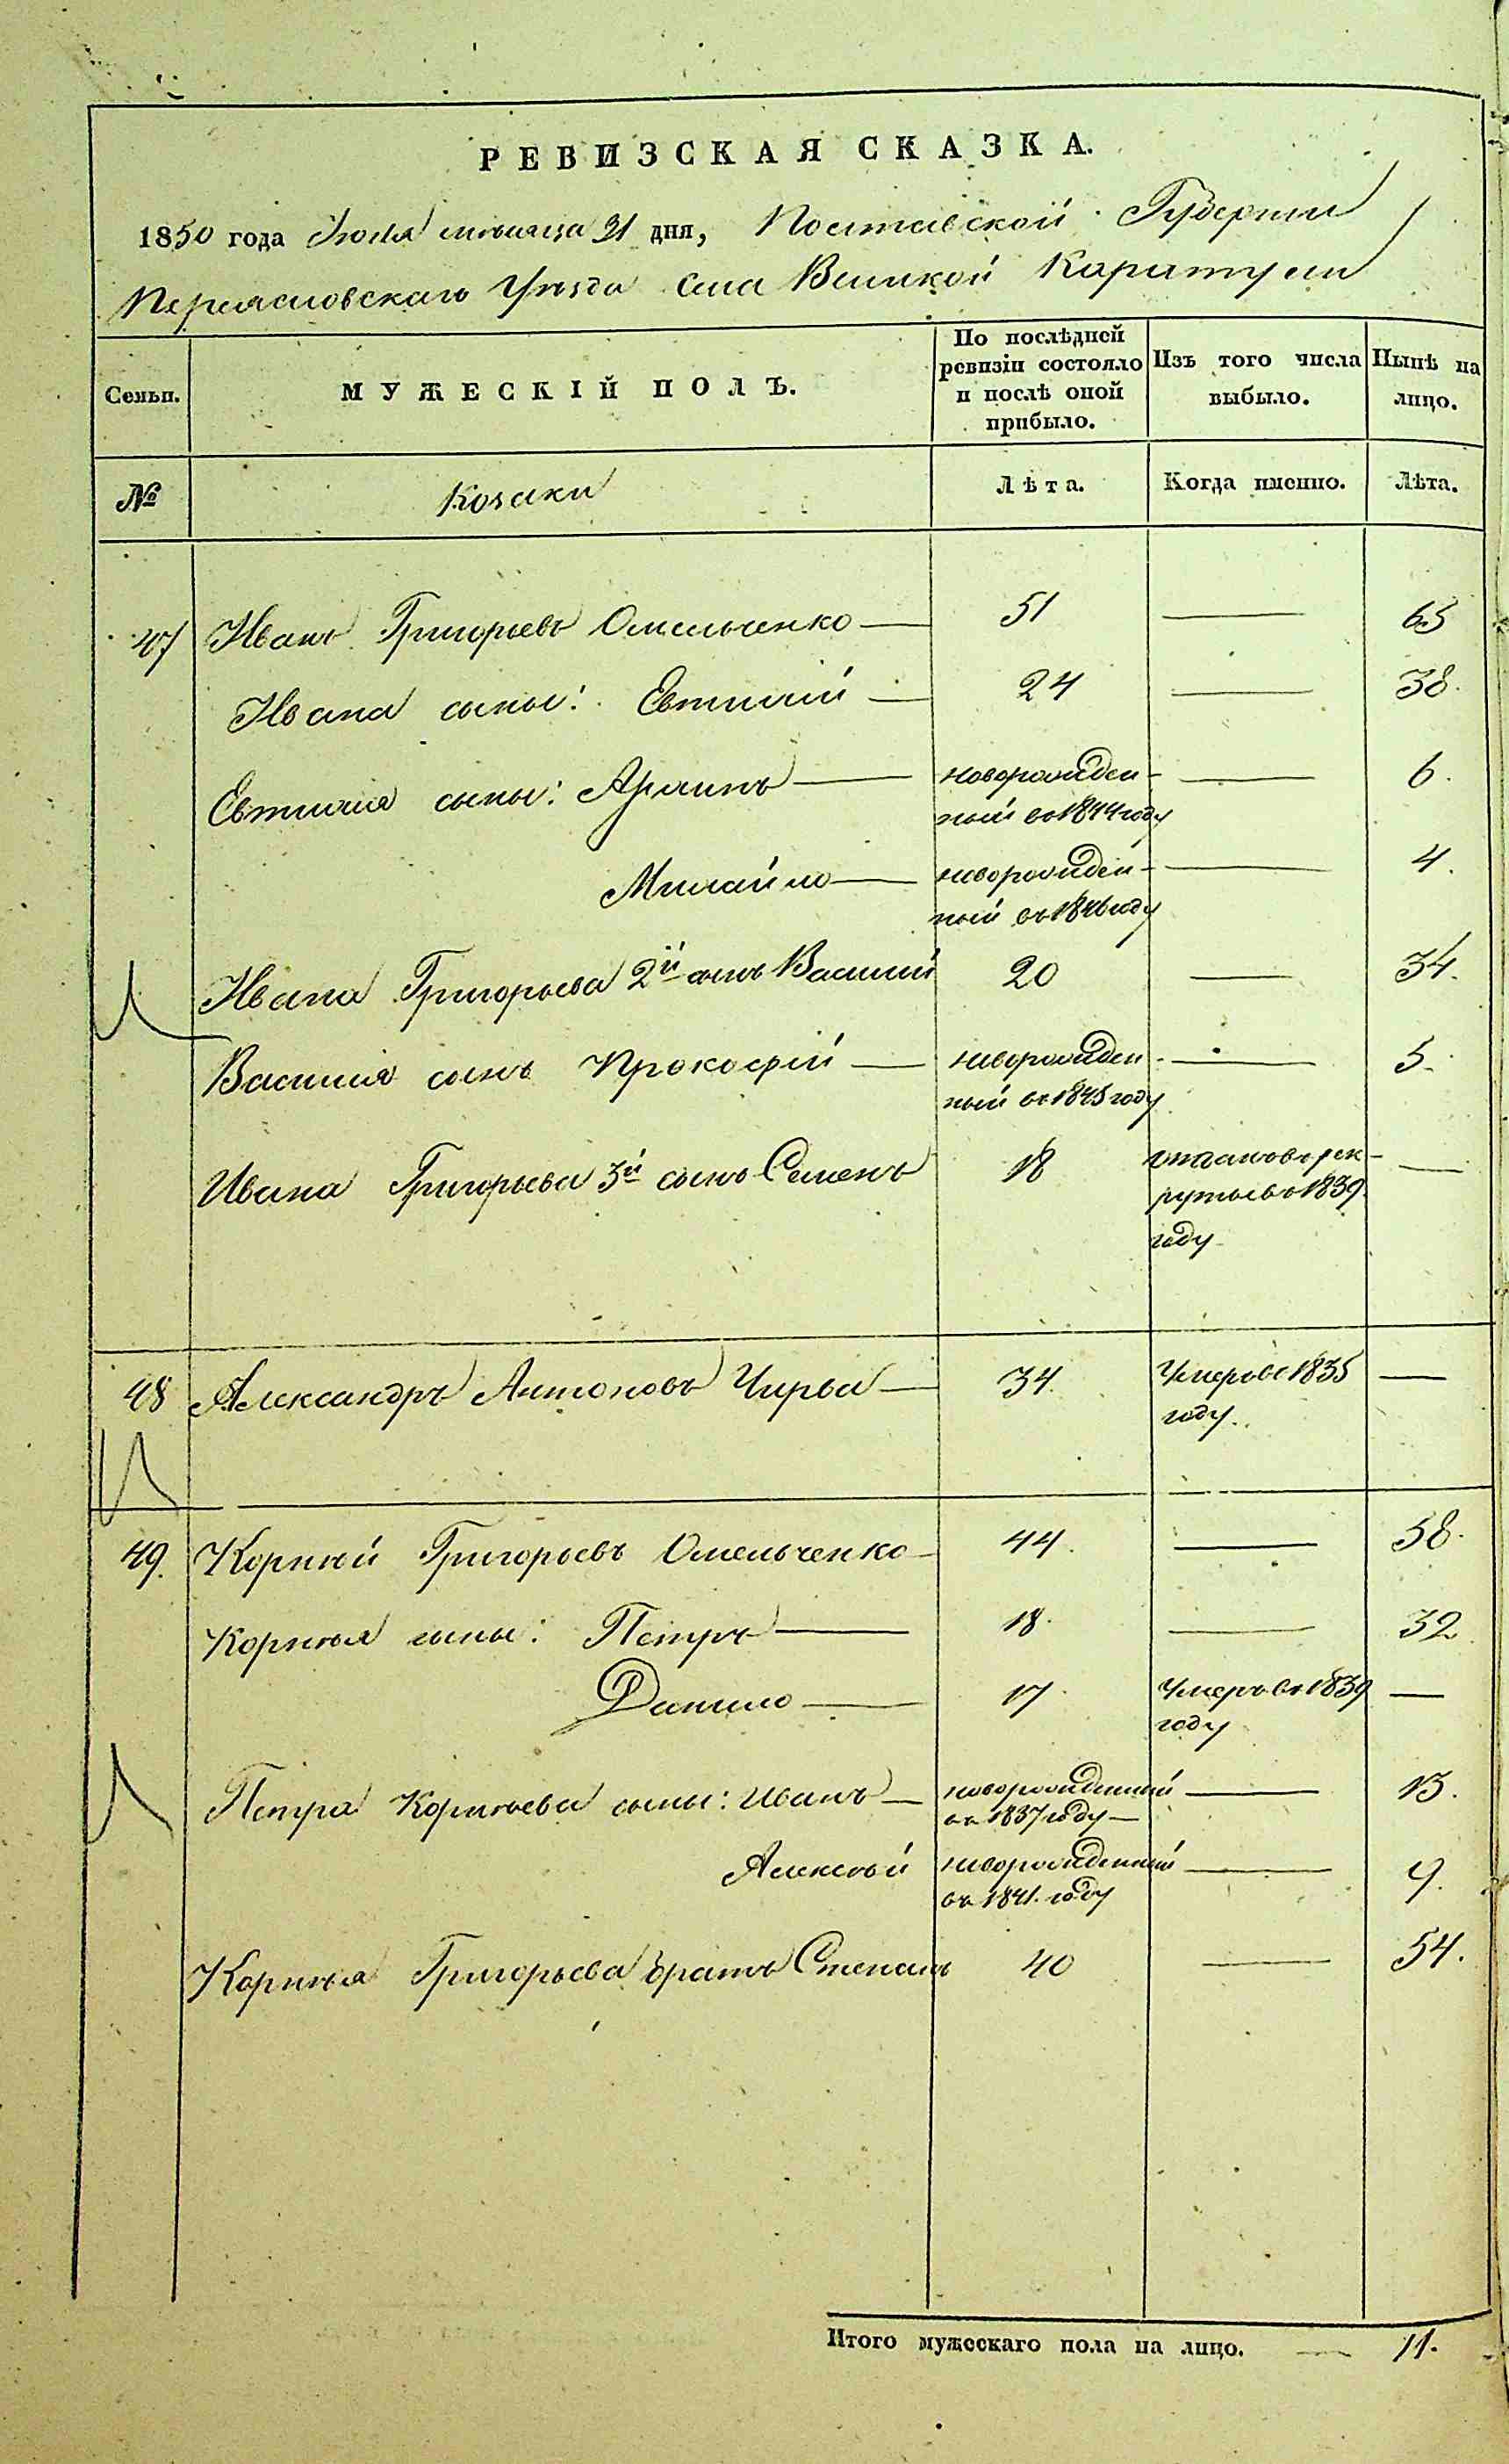 РЕВИЗСКАЯ СКАЗКА.
1850 года Июля мѣсяца 31 дня, Полтавской Губерніи
Переясловскаго Уѣзда Села Великой Каратули
Семьи. МУЖЕСКІЙ ПОЛЪ. По послѣдней ревизіи состояло и послѣ оной прибыло. Изъ того числа выбыло. Нынѣ на лицо.
№ Козаки Лѣта. Когда именно. Лѣта.
47 Иванъ Григорьевъ Омельченко — 51 — 65
Ивана сыны: Евтихій — 24 — 38.
Евтихія сыны: — новорожден- — 6.
ный въ 1844 году
Михайло — новорожден- — 4.
ный въ 1846 году
Ивана Григорьева 2й сынъ Василий 20 — 34.
Василія сынъ Прокофій — новорожден- — 5.
ный въ 1845 году
Ивана Григорьева 3й сынъ Семенъ 18 рек- —
руты въ 1839
году
48 Александръ Антоновъ Чирва — 34. Умеръ въ 1835 —
году.
49. Корнѣй Григорьевъ Омельченко — 44. — 58.
Корнѣя сыны: Петръ — 18. — 32
Данило — 17. Умеръ въ 1839 —
году
Петра Корнѣева сыны: Иванъ — новорожденный — 13.
въ 1837 году —
Алексѣй новорожденный — 9.
въ 1841. году
Корнѣя Григорьева братъ Степанъ 40 — 54.
Итого мужескаго пола на лицо. — 11.